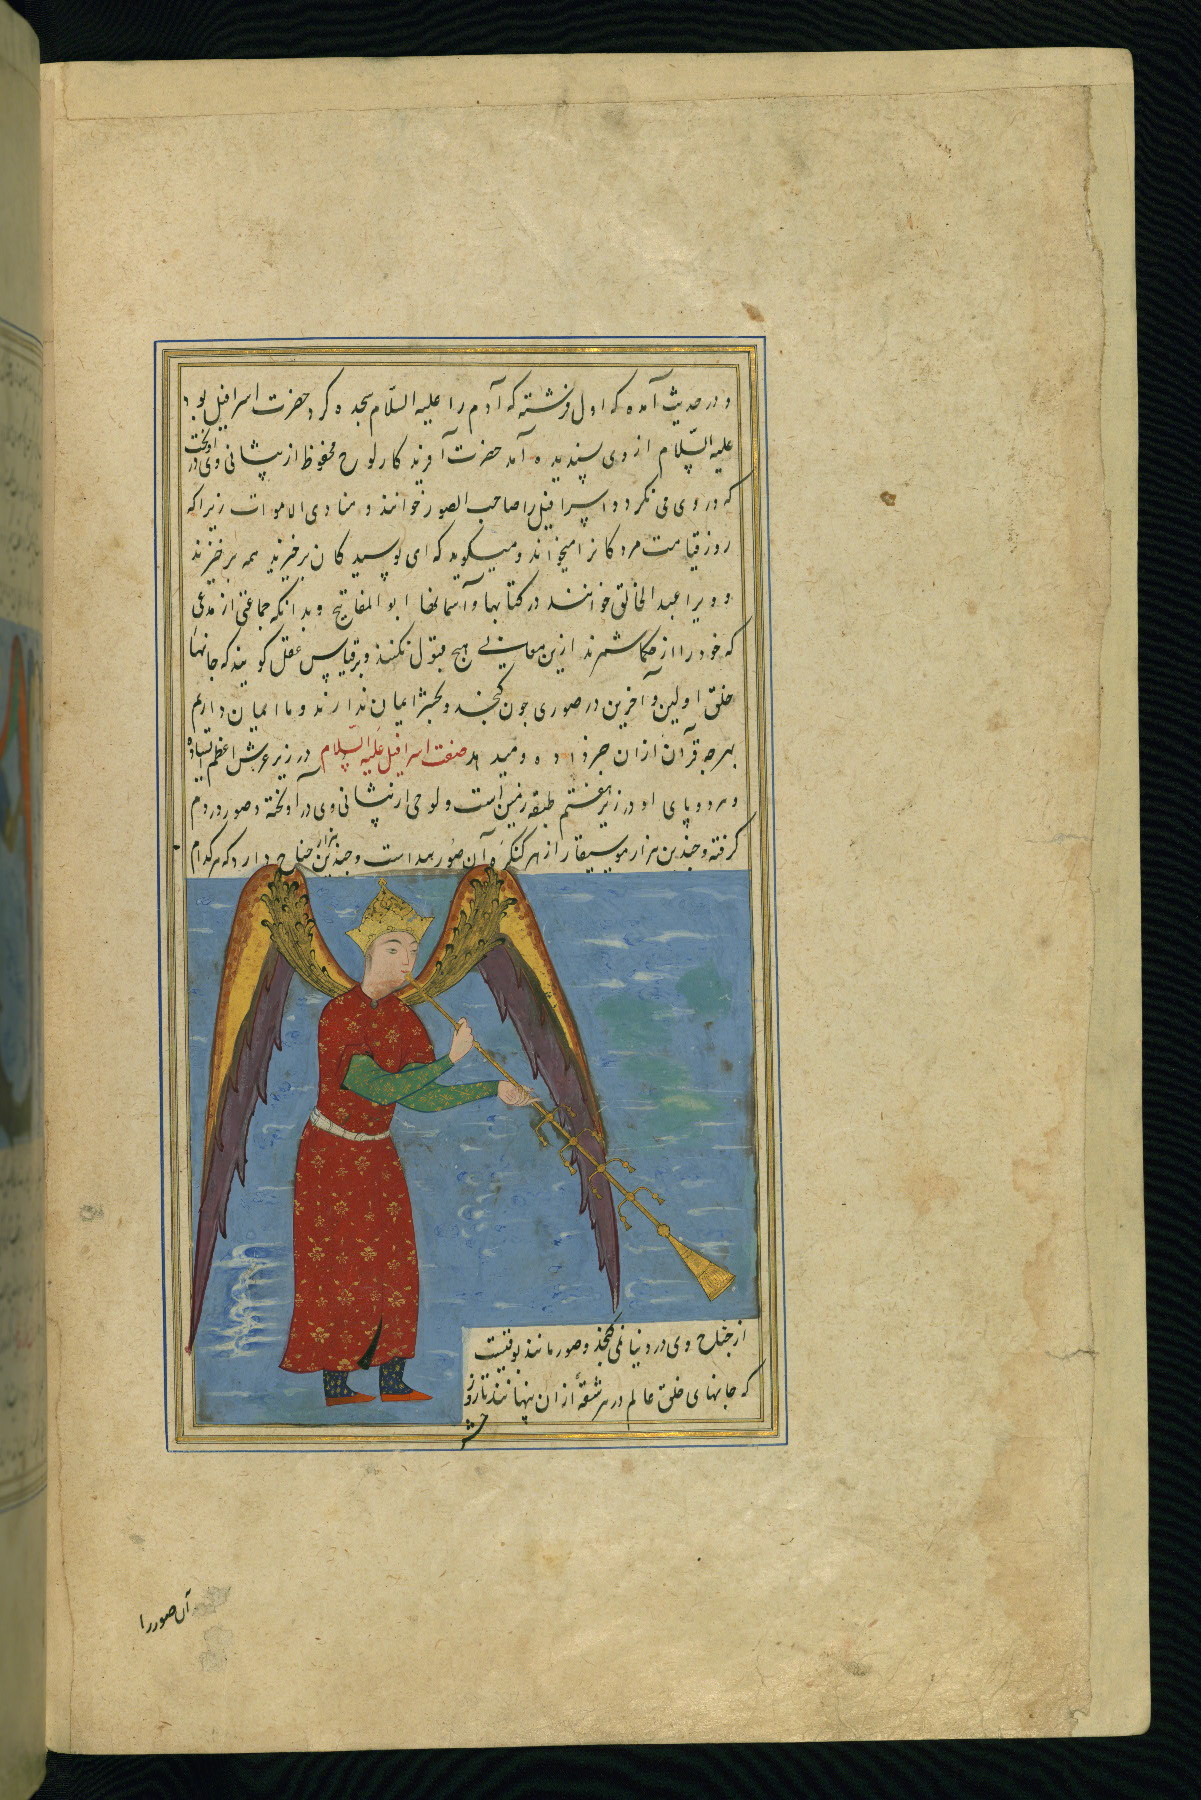 و در حدیث آمده که اول فرشته که آدم را علیه السّلام سجده کرد حضرت اسرافیل بود
علیه السّلام از وی پسندیده آمد حضرت آفریدکار لوح محفوظ از پیشانی وی در اویخت
که در وی می نکرد و اسرافیل را صاحب الصور خوانند و منادی الاموات زیرا که
روز قیامت مردکانرا میخواند و میکوید که ای پوسیدکان برخیزید همه برخیزند
و ویرا عبد الخالق خوانند در کتابها و آسمانها ابو المفاتیح و بدانکه جماعتی از مدعی
که خود را از حکما شمرند ازین معانی هیچ قبول نکنند و بر قیاس عقل کویند که جانهاء
خلق اولین و آخرین در صوری چون کنجد و بحشر ایمان ندارند و ما ایمان داریم
بهرچه قرآن ازان خبر داده و میدهد صفت اسرافیل علیه السّلام در زیر عرش اعظم ایستاده
و هر دو پای او در زیر هفتم طبقه زمین است و لوحی از پیشانی وی در آویخته و صور در دم
کرفته و چندین هزار موسیقار از هر کنکره آن صور پیداست و چندین هزار جناح دارد که هر کدام
از جناح وی در دنیا نمی کنجد و صور مانند بوقیست
که جانهای خلق عالم در هر شقهٔ ازان پنهانند تا روز
حشر
آن صور را